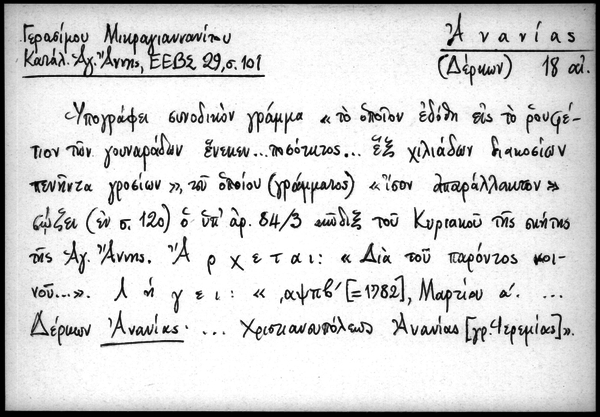 Γερασίμου Μικραγιαννανίτου
Κατάλ. Ἁγ. Ἄννης, ΕΕΒΣ 29, σ. 101
Ἀνανίας
(Δέρκων) 18 αἰ.
Ὑπογράφει συνοδικὸν γράμμα «τὸ ὁποῖον ἐδόθη εἰς τὸ ῥουφέ-
τιον τῶν γουναράδων ἕνεκεν... ποσότητος... ἓξ χιλιάδων διακοσίων
πενῆντα γροσίων», τοῦ ὁποίου (γράμματος) «ἴσον ἀπαράλλακτον»
σῴζει (ἐν σ. 120) ὁ ὑπ' ἀρ. 84/3 κῶδιξ τοῦ Κυριακοῦ τῆς σκήτης
τῆς Ἁγ. Ἄννης. Ἄρχεται: «Διὰ τοῦ παρόντος κοι-
νοῦ...». Λήγει: «͵αψπβ´ [=1782], Μαρτίου α´. ...
Δέρκων Ἀνανίας· ... Χριστιανουπόλεως Ἀνανίας [γρ. Ἱερεμίας]».